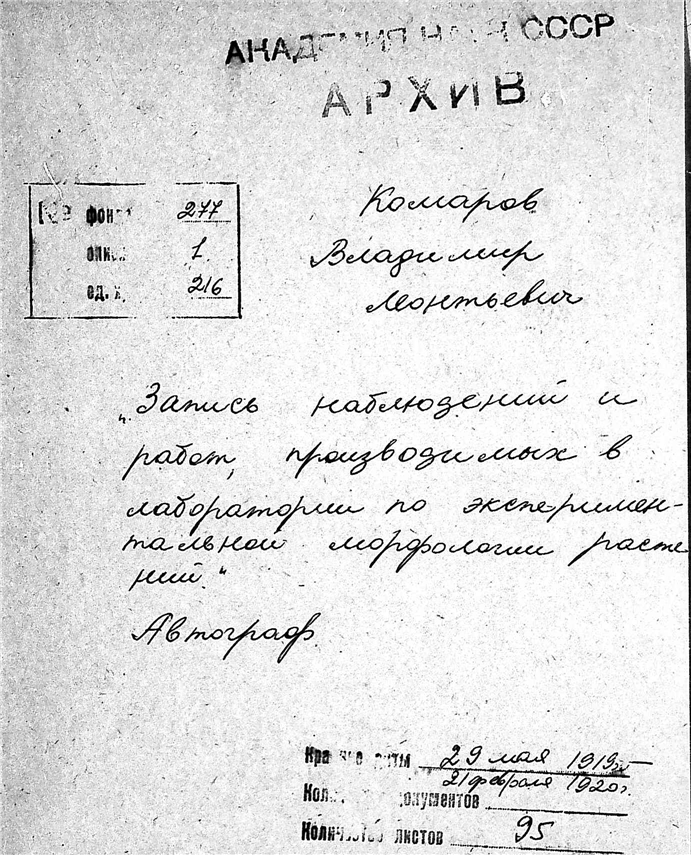 АКАДЕМИЯ НАУК СССР
АРХИВ
№ фонд 277
опись 1
ед. х. 216
Комаров
Владимир
Леонтьевич
„Запись наблюдений и
работ, производимых в
лаборатории по эксперимен-
тальной морфологии расте
ний."
Автограф
Крайние даты 29 мая 1919 г.
21 февраля 1920 г.
Кол. документов
Количество листов 95